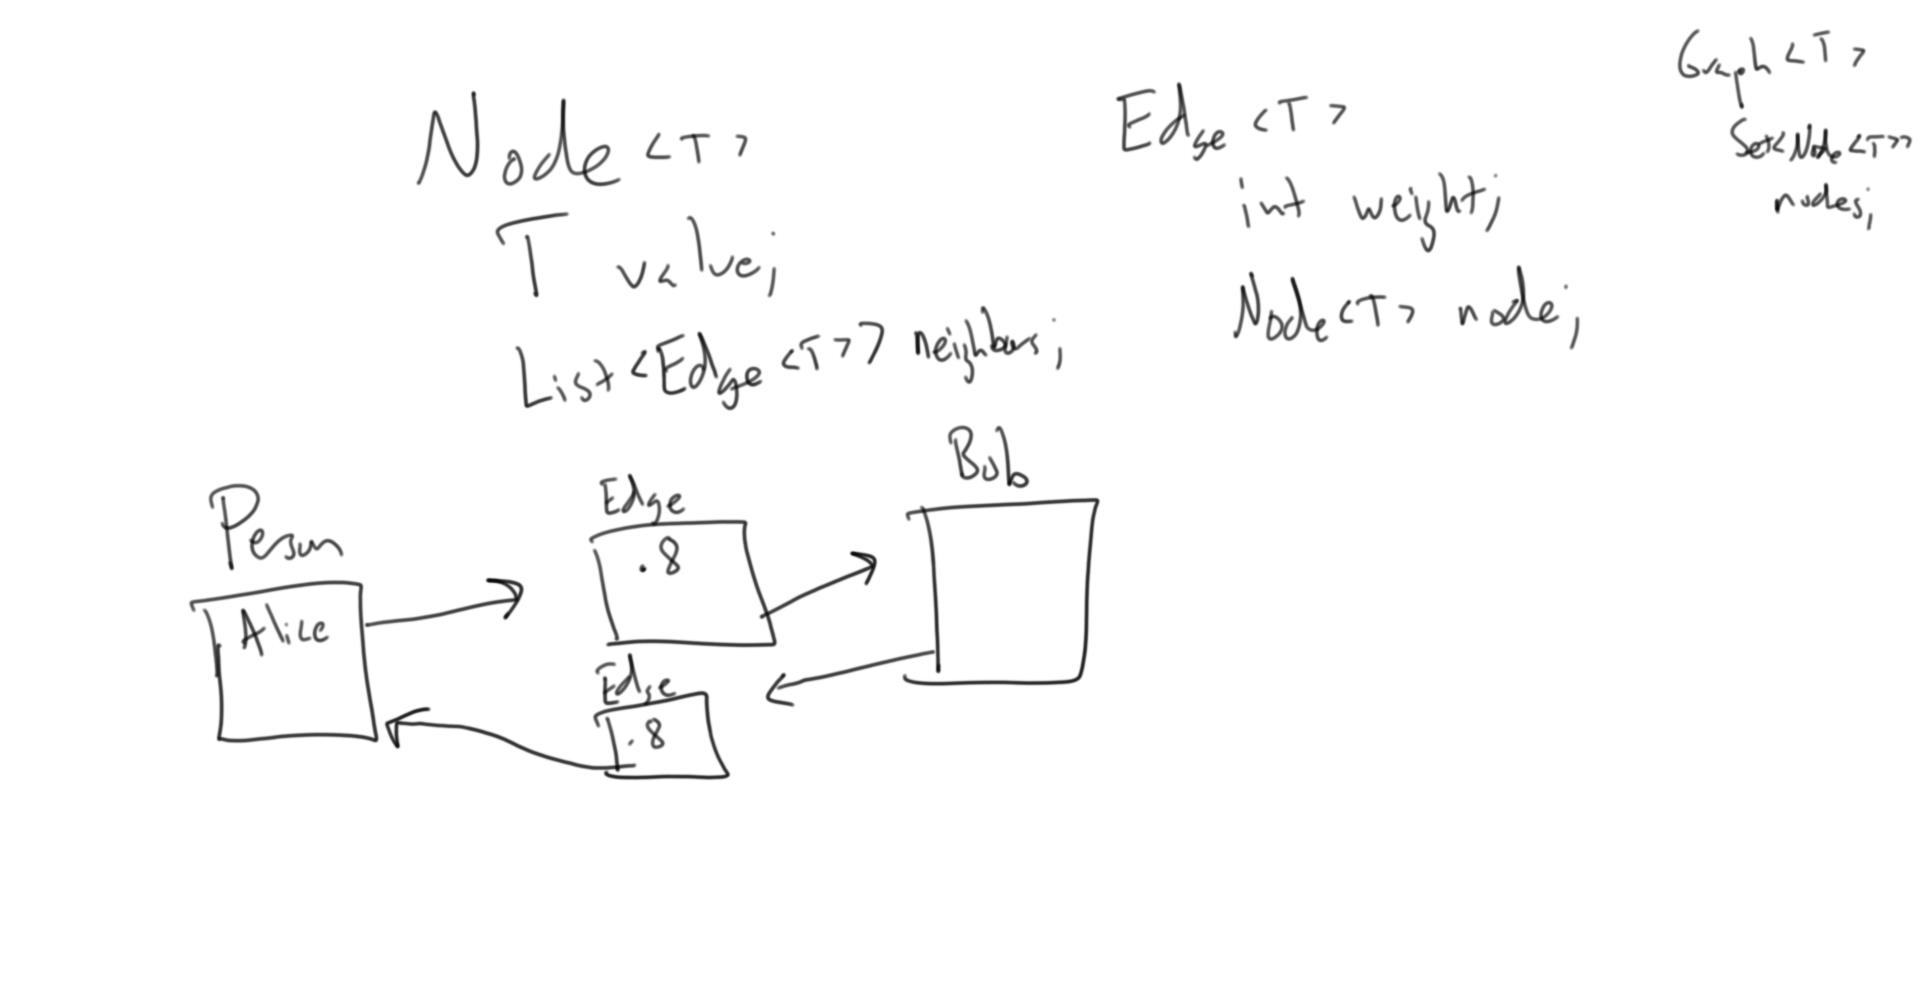 Node <T>
T value;
List<Edge<T>> neighbours;
Edge <T>
int weight;
Node<T> node;
Graph <T>
Set<Node<T>>
nodes;
Person
Alice
Edge
.8
Bob
Edge
.8